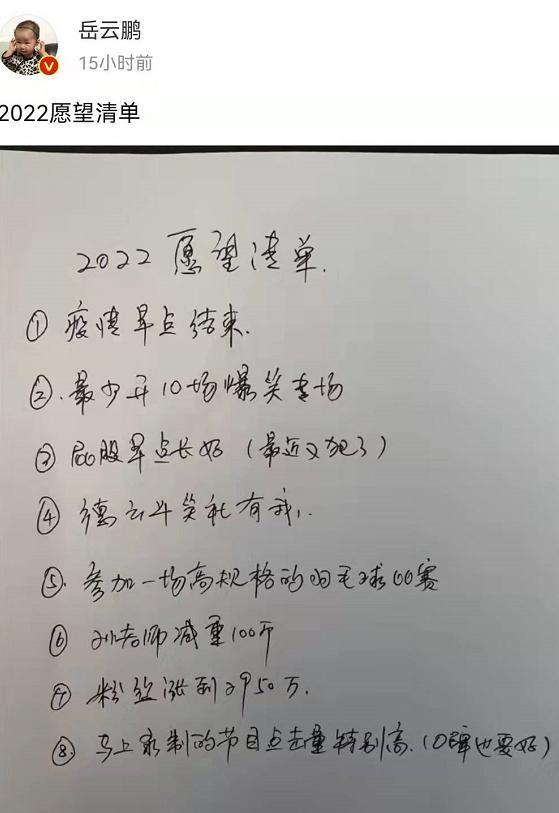 岳云鹏
15小时前
2022愿望清单
2022愿望清单.
①疫情早点结束.
②.最少开10场爆笑专场
③屁股早点长好（最近又犯了）
④德云斗笑社有我..
⑤.参加一场高规格的羽毛球比赛
⑥孙老师减重100斤
⑦粉丝涨到2950万.
⑧.马上录制的节目点击量特别高.（口碑也要好）